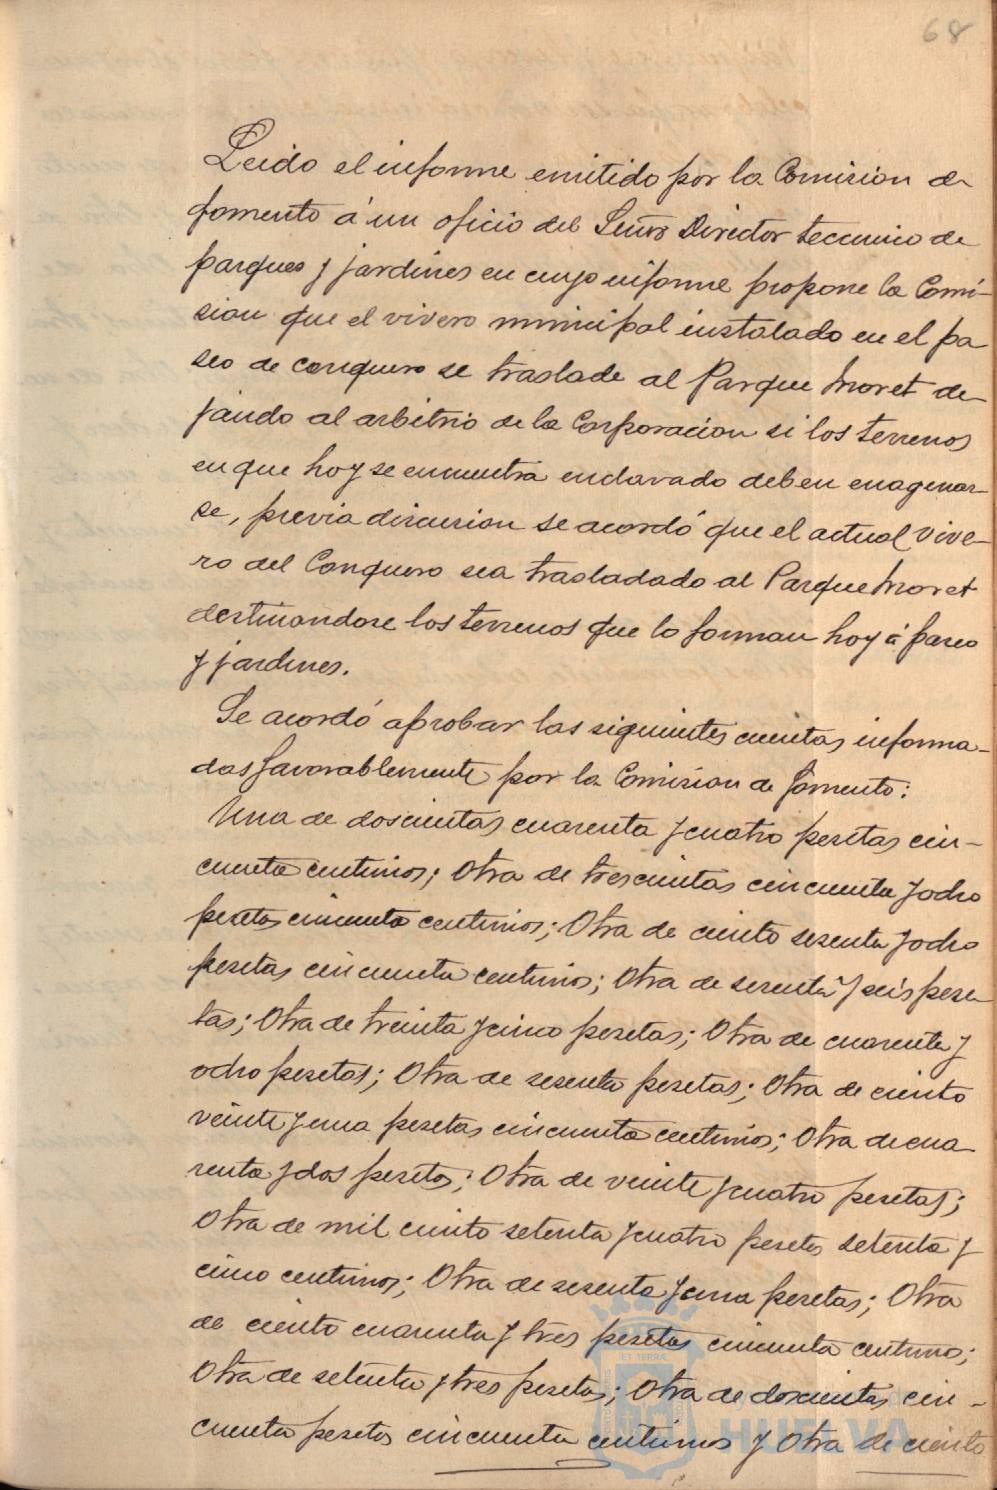 68
Leido el informe emitido por la Comision de
fomento á un oficio del Señor Director tecnico de
parques y jardines en cuyo informe propone la Comi-
sion que el vivero municipal instalado en el pa
seo de conquero se traslade al Parque Moret de-
jando al arbitrio de la Corporacion si los terrenos
en que hoy se encuentra enclavado deben enagenar-
se, previa discusion se acordó que el actual vive-
ro del Conquero sea trasladado al Parque Moret
destinandose los terrenos que lo forman hoy á paseo
y jardines.
Se acordó aprobar las siguientes cuentas informa-
das favorablemente por la Comision de fomento:
Una de doscientas cuarenta y cuatro pesetas cin-
cuenta centimos; Otra de trescientas cincuenta y ocho
pesetas cincuenta centimos; Otra de ciento sesenta y ocho
pesetas cincuenta centimos; Otra de sesenta y seis pese
tas; Otra de treinta y cinco pesetas; Otra de cuarenta y
ocho pesetas; Otra de sesenta pesetas; Otra de ciento
veinte y una pesetas cincuenta centimos; Otra de cua
renta y dos pesetas; Otra de veinte y cuatro pesetas;
Otra de mil ciento setenta y cuatro pesetas setenta y
cinco centimos; Otra de sesenta y una pesetas; Otra
de ciento cuarenta y tres pesetas cincuenta centimos;
Otra de setenta y tres pesetas; Otra de doscientas cin-
cuenta pesetas cincuenta centimos y Otra de ciento
ET TERRÆ
HUELVA